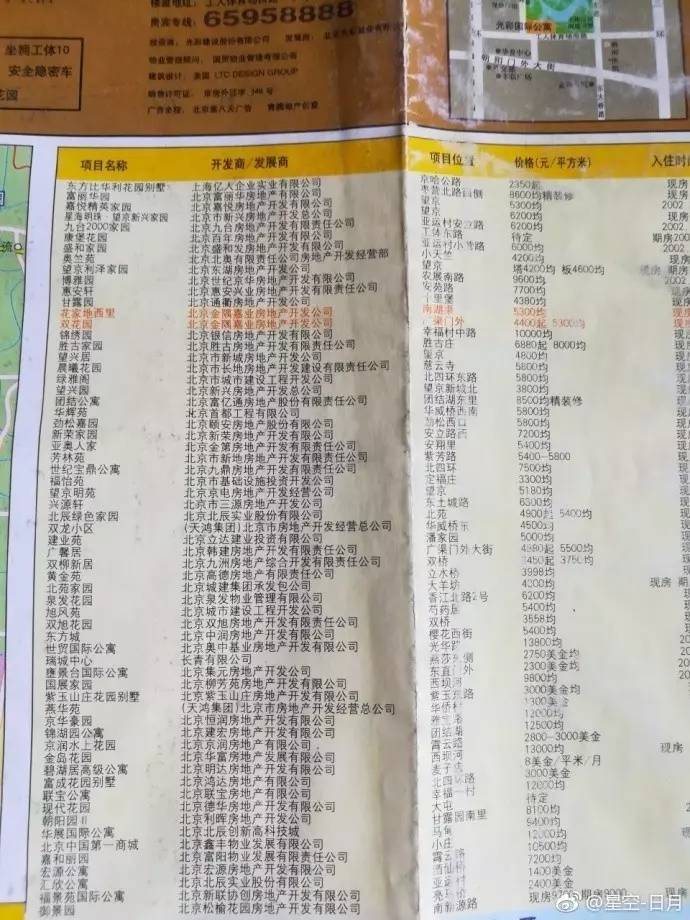 工人体育场
贵宾专线：65958888
投资商：光彩建设股份有限公司
物业管理顾问：国贸物业管理有限公司
建筑设计：美国 LTC DESIGN GROUP
广告全程：北京第八天广告
坐骑工体10
安全隐密车
花园
光彩国际公寓
工人体育场南路
朝阳门外大街
项目名称 开发商/发展商
东方比华利花园别墅 上海亿人企业实业有限公司
富丽华园 北京富丽华房地产有限公司
嘉悦精英家园 北京嘉悦房地产开发有限公司
星海明珠·望京新兴家园 北京市新兴房地产开发总公司
九台2000家园 北京九台房地产开发有限责任公司
康堡花园 北京百年房地产开发有限公司
盛和家园 北京盛和发房地产开发有限公司
奥兰苑 北京北奥有限责任公司房地产开发经营部
望京利泽家园 北京东湖房地产开发公司
博雅园 北京世纪京华房地产开发有限公司
惠安轩 北京惠安兴业房地产开发有限责任公司
甘露园 北京通衢房地产开发公司
花家地西里 北京金隅嘉业房地产开发公司
双花园 北京金隅嘉业房地产开发公司
锦绣园 北京银信房地产开发有限公司
胜古家园 北京胜古房地产开发有限责任公司
望兴居 北京市新城房地产开发公司
晨曦花园 北京市长地房地产开发建设有限责任公司
绿雅阁 北京市城市建设工程开发公司
望兴园 北京新兴房地产开发总公司
团结公寓 北京富亿通房地产股份有限责任公司
华辉苑 北京首都工程有限公司
劲松嘉园 北京颐安房地产股份有限公司
新荣家园 北京新荣房地产开发有限公司
亚奥人家 北京金第房地产开发有限责任公司
芳林苑 北京市新地房地产开发有限责任公司
世纪宝鼎公寓 北京九鼎房地产开发有限责任公司
福怡苑 北京市基础设施投资开发公司
望京明苑 北京京电房地产开发经营公司
兴源轩 北京市三源房地产开发公司
北辰绿色家园 北京北辰实业股份有限公司
双龙小区 (天鸿集团)北京市房地产开发经营总公司
建业苑 北京立达建业投资有限公司
广馨居 北京韩建房地产开发有限责任公司
双柳新居 北京九洲房地产综合开发有限责任公司
黄金苑 北京高德房地产有限责任公司
北苑家园 北京城建集团承发包公司
泉发花园 北京泉发物业管理有限公司
旭风苑 北京城市建设工程开发公司
双旭花园 北京双业房地产开发有限责任公司
东方城 北京中润房地产开发有限公司
世贸国际公寓 北京奥中基业房地产开发有限公司
瑞城中心 长青有限公司
雍景台国际公寓 北京集元房地产开发公司
国展家园 北京柳芳苑房地产开发有限公司
紫玉山庄花园别墅 北京紫玉山庄房地产开发有限公司
燕华苑 (天鸿集团)北京市房地产开发经营总公司
京华豪园 北京恒润房地产开发有限公司
锦湖园公寓 北京建宏房地产开发有限公司
京润水上花园 北京京润房地产有限公司
金岛花园 北京华富房地产发展有限公司
碧湖居高级公寓 北京明达房地产开发有限公司
富成花园别墅 北京鸿达房地产有限公司
联宝公寓 北京联宝房地产有限公司
现代花园 北京德华房地产开发有限公司
朝阳园Ⅱ 北京利晖房地产开发有限公司
华展国际公寓 北京北辰创新高科技城
北京中国第一商城 北京鑫丰物业发展有限公司
嘉和丽园 北京富阳物业发展有限责任公司
宏源公寓 北京宏源房地产开发有限公司
汇欣公寓 北京北辰实业股份有限公司
福景苑国际公寓 北京新联协创房地产开发有限公司
御景园 北京松榆花园房地产开发有限公司
项目位置 价格(元/平方米) 入住时间
京哈公路 2350起 现房
枣营北路西侧 8600均精装修 现房
望京 5300均 2002
望京 6200均 现房
亚运村安立路 6200均
工体东路 待定 期房2002
亚运村小营路 6200均 2002
小天竺 4200均
望京 塔4200均 板4600均 现房
农展南路 9600均
安苑路 7700均
十里堡 4380均
南湖渠 5300均
广渠门外 4400起 5300均
幸福村中路 10000均
胜古庄 6880起 8000均
望京 4800均
慈云寺 5800均
北四环东路 5800均
望京新城北 3800均
团结湖东里 8500均精装修
华威桥西南 5800均
劲松西口 5800均
安立路西 7200均
安翔里 5400均
紫芳路 5400--5800
北四环 7500均
定福庄 3300均
望京 5180均
东土城路 6300均
北苑 4900起 5400均
华威桥东 4500均
潘家园 5000均
广渠门外大街 4980起 5500均
双桥 3450起 3750均
立水桥 3998均
大羊坊 4200均 现房
香江北路2号 6200均
芍药居 5400均
双桥 3558均
樱花西街 5400均
光华路 13800均
燕莎东侧 2750美金均
东直门外 2300美金均
西坝河 9800均
紫玉东路 3000美金均
团结湖 2800--3000美金
霄云路 13000均 现房
西坝河 8美金/平米/月
麦子店 3000美金
北四环路 12000均
幸福一村 待定
大屯 8100均
甘露园南里 9400均
马甸 12000均
小庄 10500均
霄云路 7200均
酒仙桥 1400美金
亚运村 2400美金
@星空-日月